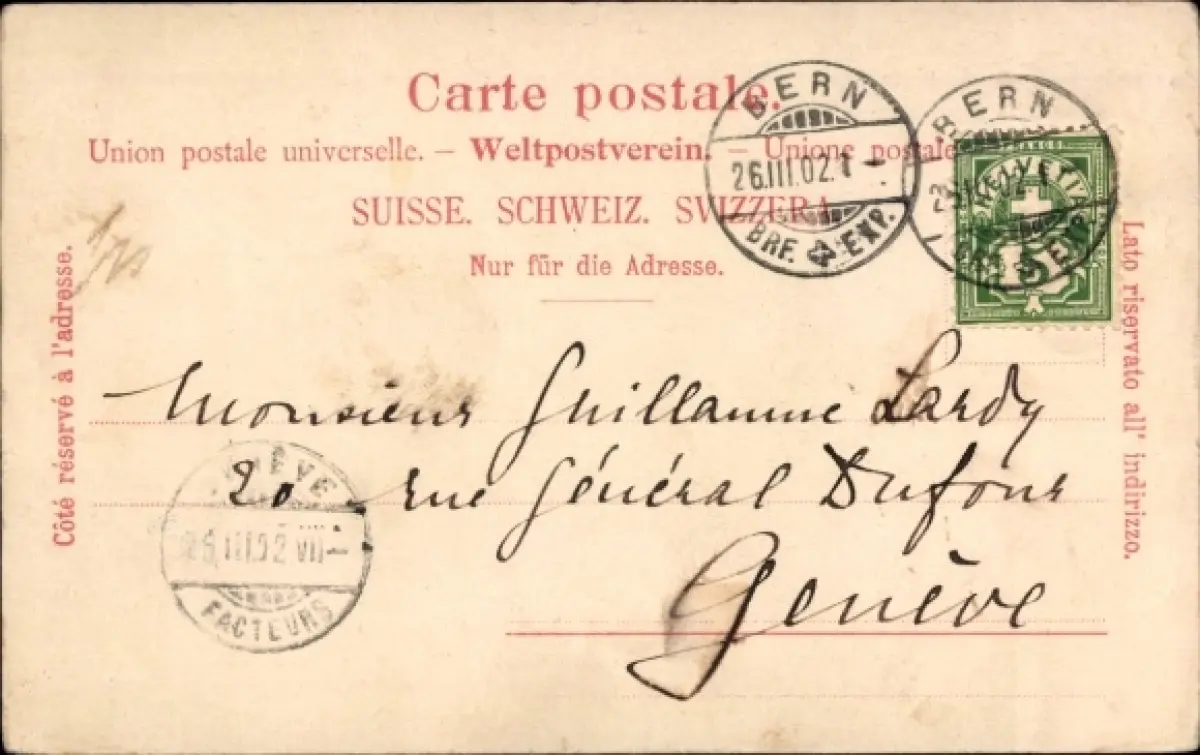 Carte postale.
Union postale universelle. – Weltpostverein. – Unione postale
SUISSE. SCHWEIZ. SVIZZERA.
Nur für die Adresse.
Côté réservé à l'adresse.
Lato riservato all' indirizzo.
BERN
26.III.02.1–
BRF. EXP.
BERN
HELVETIA
5
Monsieur Guillaume Lardy
20 rue Général Dufour
Genève
GENÈVE
26.III.02 VII–
FACTEURS